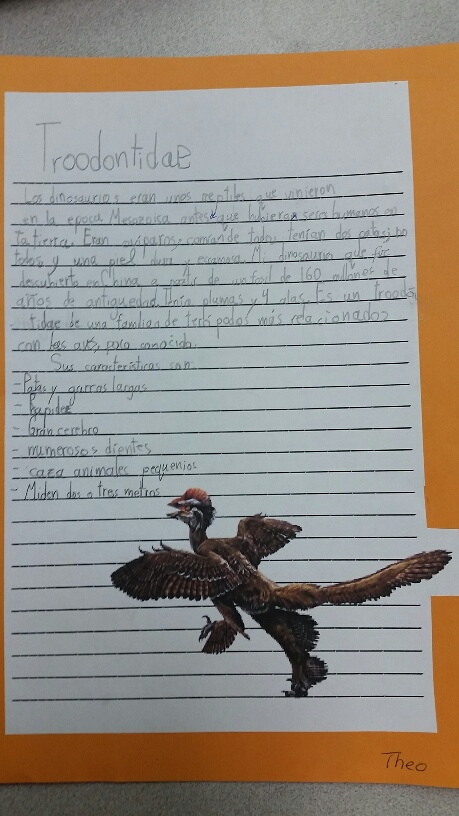 Troodontidae
Los dinosaurios eran unos reptiles que vivieron
en la epoca Mesozoica antes que hubieran seres humanos en
la tierra. Eran ovíparos, comían de todo, tenían dos patas, no
todos y una piel dura y escamosa. Mi dinosaurio que fué
descubierto en China a partir de un fosil de 160 millones de
años de antiguedad. Tenía plumas y 4 alas. Es un troodo
tidae de una familia de terópodos más relacionados
con las aves, poco conocido.
Sus características son:
- Patas y garras largas
- Rapidez
- Gran cerebro
- numerosos dientes
- caza animales pequenios
- Miden dos o tres metros
Theo